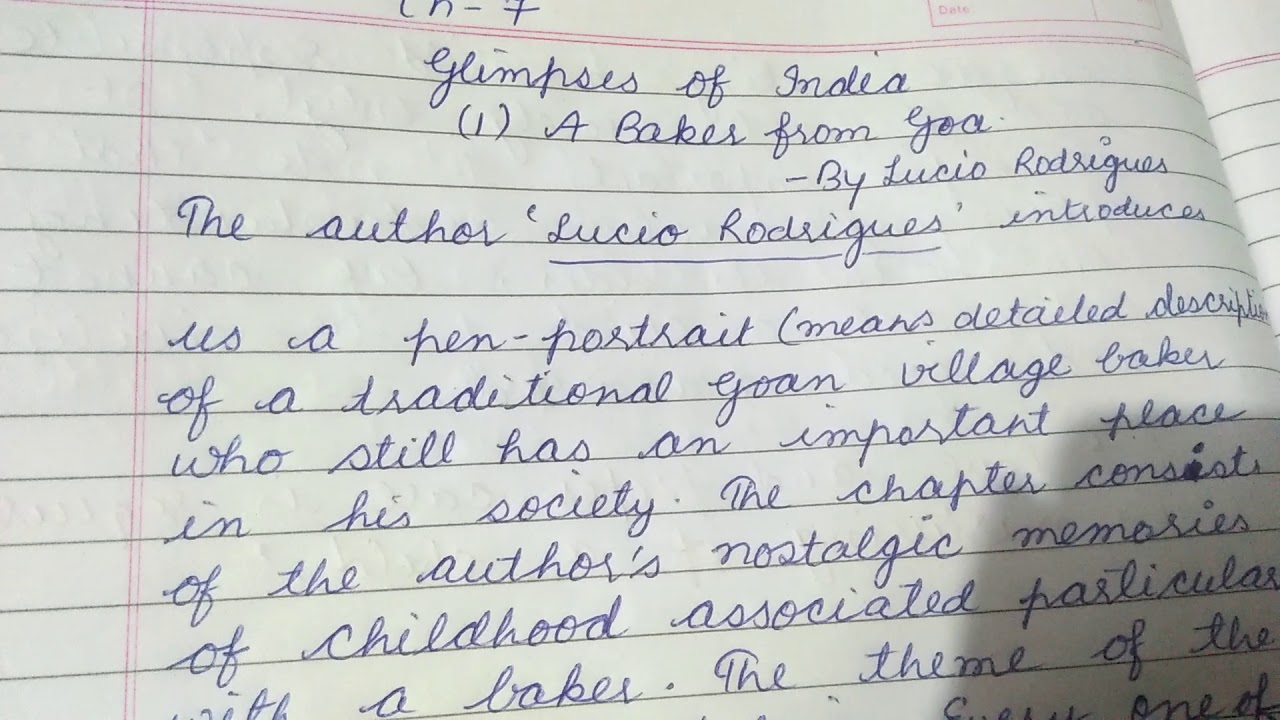 Ch-7
Date
Glimpses of India
(1) A Baker from Goa.
-By Lucio Rodrigues
The author 'Lucio Rodrigues' introduces
us a pen-portrait (means detailed descripti
of a traditional Goan village baker
who still has an important place
in his society. The chapter consists
of the author's nostalgic memories
of childhood associated particular
with a baker. The theme of the
Every one of